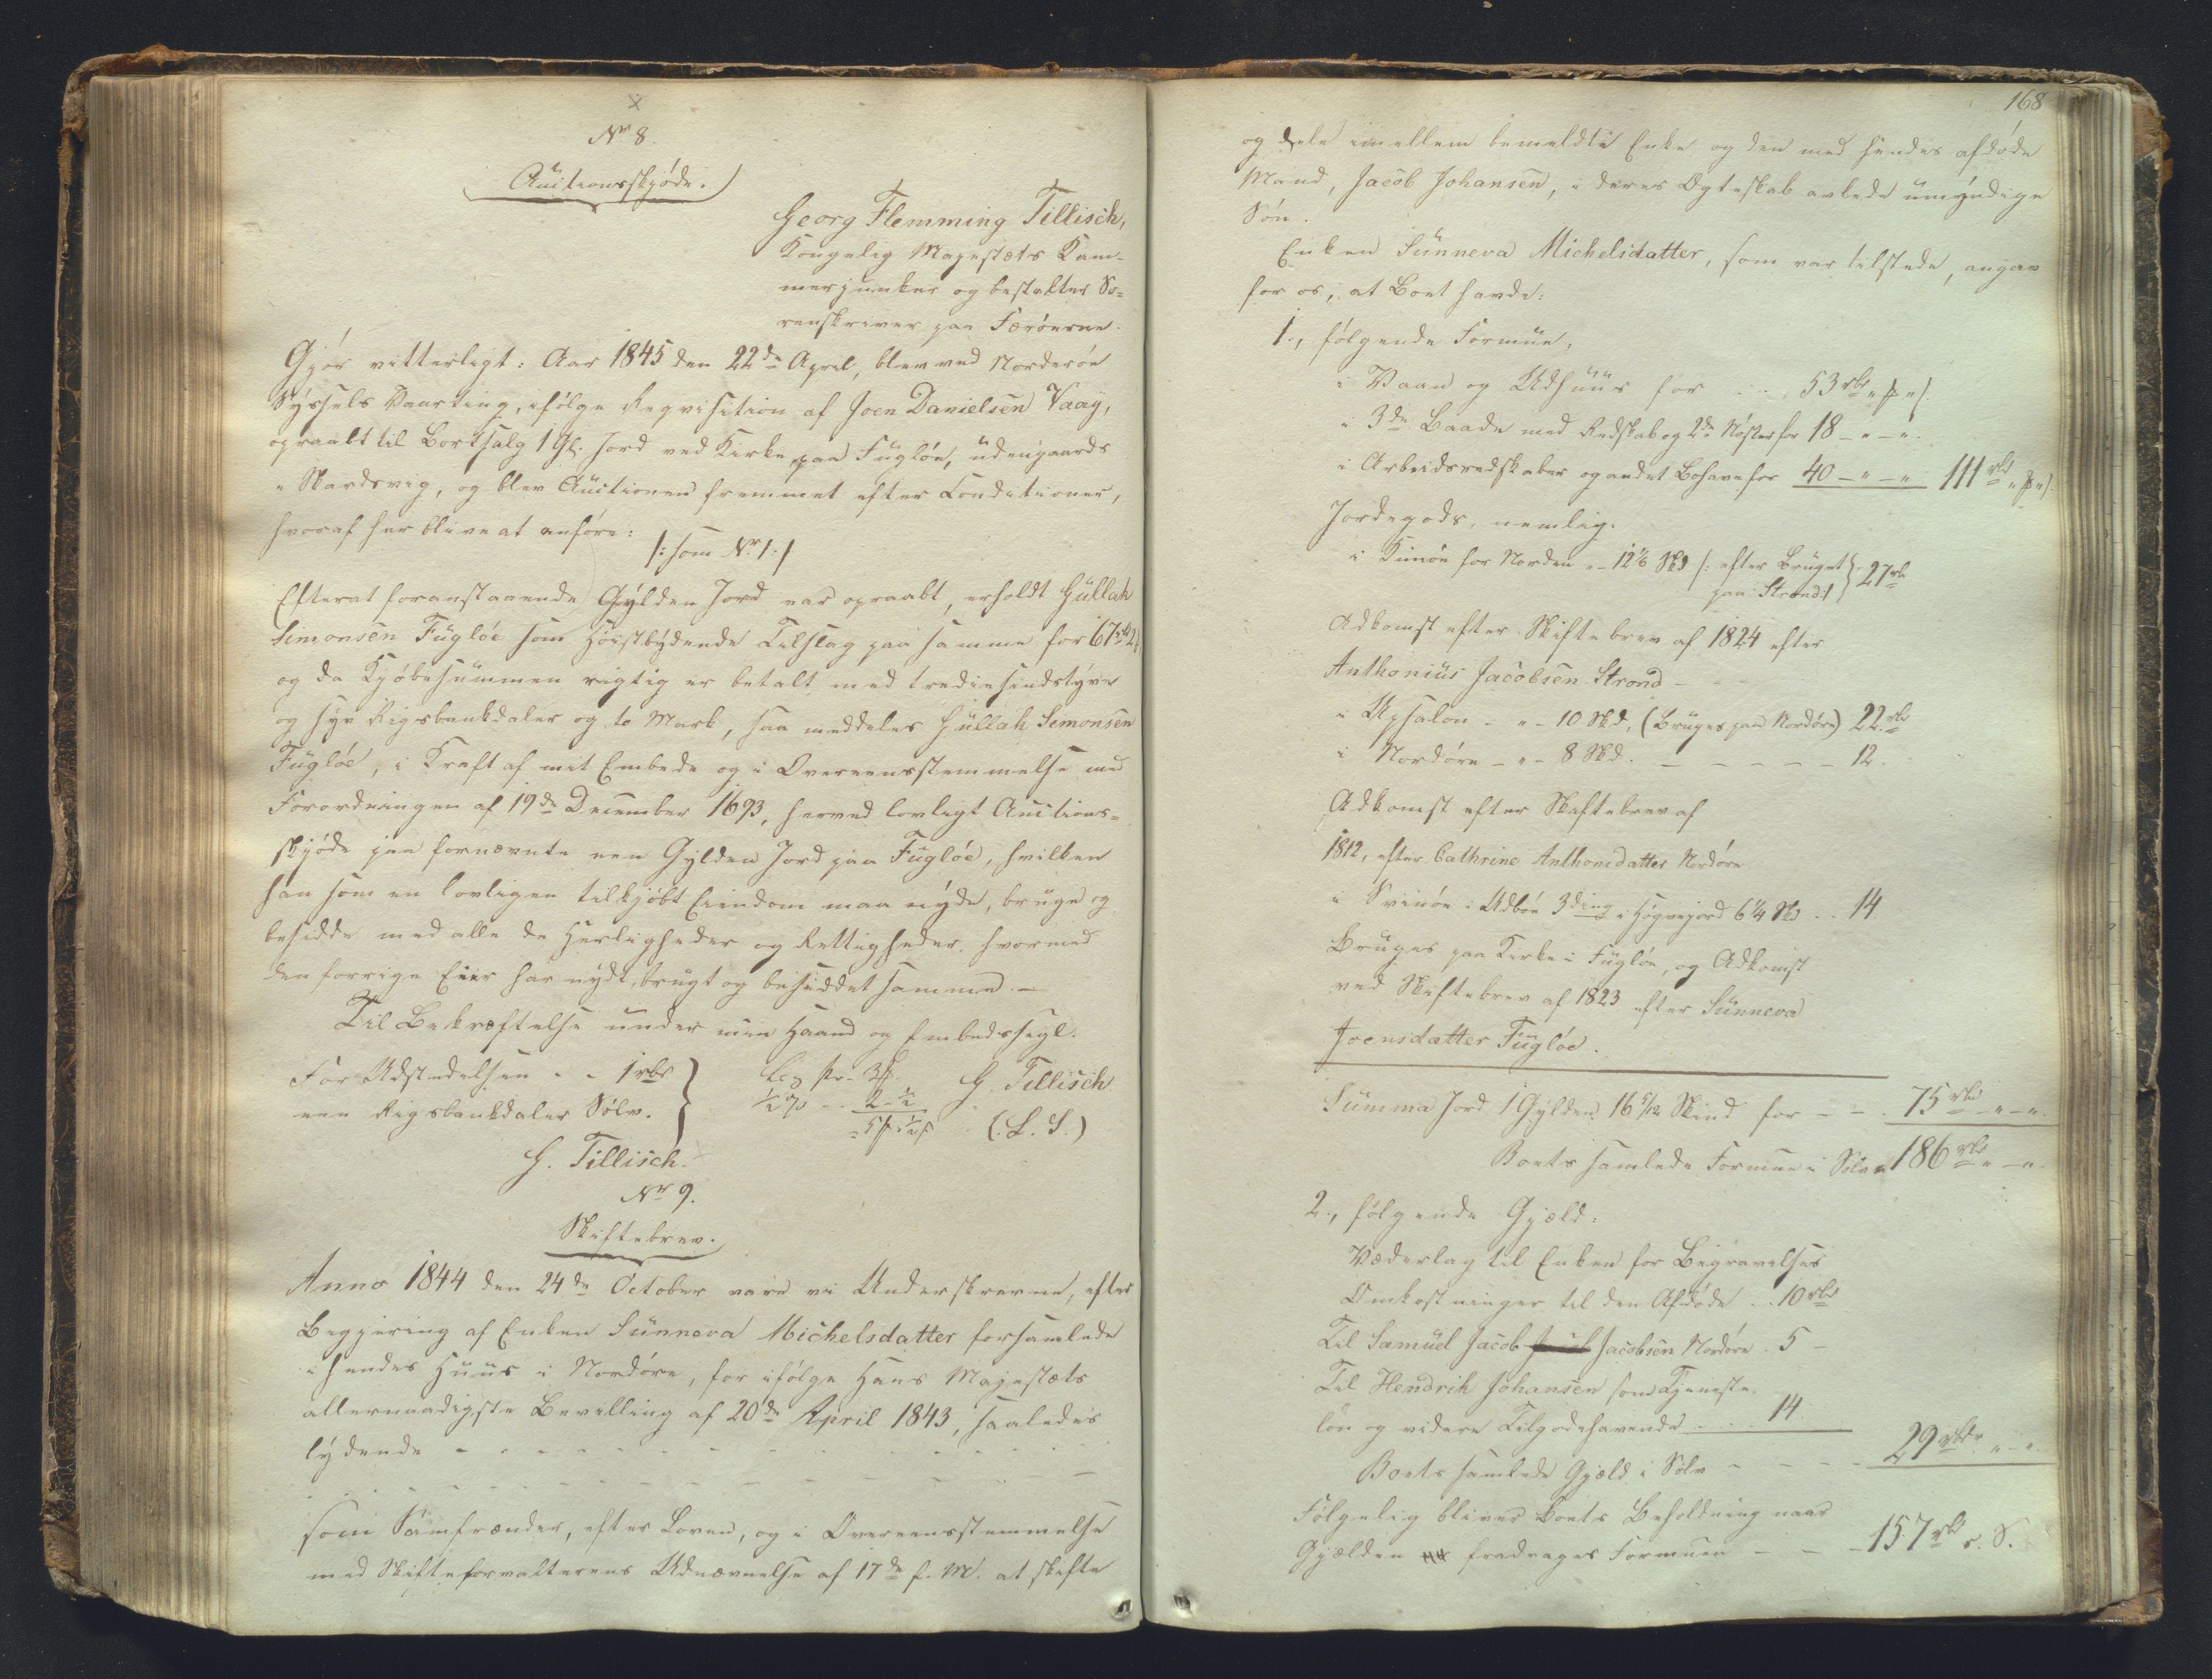 Nr 8.
Auctionsskjøde.
Georg Flemming Tillisch,
Kongelig Majestæts Kam-
merjunker og bestalter So-
renskriver paa Færöerne.
Gjør vitterligt: Aar 1845 den 22de April, blev ved Norderöe
Syssels Vaarting, ifølge Reqvisition af Joen Danielsen Vaag,
opraabt til Bortsalg 1 Gl. Jord ved Kirke paa Fugløe, udengaards
i Skardsvig, og blev Auctionen fremmet efter Conditioner,
hvoraf her blive at anføre:
/: som Nr 1:/
Efterat foranstaaende Gylden Jord var opraabt, erholdt Gullak
Simonsen Fugløe som høistbydende Tilslag paa samme for 67rbd 2
og da Kjøbesummen rigtig er betalt med trediesindstyve
og syv Rigsbankdaler og to Mark, saa meddeles Gullak Simonsen
Fugløe, i Kraft af mit Embede og i Overeensstemmelse med
Forordningen af 19de December 1693, herved lovligt Auctions-
skjøde paa fornævnte een Gylden Jord paa Fugløe, hvilken
han som en lovligen tilkjøbt Eiendom maa nyde, bruge og
besidde med alle de Herligheder og Rettigheder, hvormed
den forrige Eier har nydt, brugt og besiddet samme.-
Til Bekræftelse under min Haand og Embedssegl.
For Udstedelsen - - 1rbd
een Rigsbankdaler Sølv.
G. Tillisch
½ % - - 2 - ½
(L. S.)
G. Tillisch.
Nr 9.
Skiftebrev.
Anno 1844 den 24de October vare vi Underskrevne, efter
Begjering af Enken Sunneva Michelsdatter forsamlede
i hendes Huus i Nordøre, for ifølge Hans Majestæts
allernaadigste Bevilling af 20de April 1843, saaledes
lydende - - - - - - - - - -
som Samfrænder, efter Loven, og i Overeensstemmelse
med Skifteforvalterens Udnævnelse af 17de f. M. at skifte
168
og dele imellem bemeldte Enke og den med hendes afdøde
Mand, Jacob Johansen, i deres Ægteskab avlede umyndige
Søn.
Enken Sunneva Michelsdatter, som var tilstede, angav
for os, at Boet havde:
1., følgende Formue,
i Vaan og Udhuus for - - 53 rbd " ß "
" 3de Baade med Redskab og 2de Nøster for 18 - " - "
i Arbeidsredskaber og andet Bohave for 40 - " - " 111 rbd " ß "
Jordegods, nemlig.
i Kunöe for Norden - - 12½ Skd /: efter Bruget
paa Strond:/ 27rbd
Adkomst efter Skiftebrev af 1824 efter
Anthonius Jacobsen Strond -
i Upsalon - " - 10 Skd. (Bruges paa Nordøre) 22.rbd
i Nordøre - " - 8 Skd. - - - - - - 12.
Adkomst efter Skiftebrev af
1812, efter Cathrine Anthonsdatter Nordøre
i Svinöe i Udböe 3ding i Høgnejord 6¼ Skd - - 14
Bruges paa Kirke i Fugløe, og Adkomst
ved Skiftebrev af 1823 efter Sunneva
Joensdatter Fugløe.
Summa Jord 1 Gylden 16 5/12 Skind for - - 75 rbd - " - ".
Boets samlede Formue i Sølv 186 rbd " - ".
2., følgende Gjæld:
Vederlag til Enken for Begravelses
Omkostninger til den Afdøde - - 10 rbd
Til Samuel Jacob Jacobsen Nordøre - 5 -
Til Hendrik Johansen som Tjeneste-
løn og videre Tilgodehavende - - 14
Boets samlede Gjæld i Sølv - - - - 29 rbd " - ".
Følgelig bliver Boets Beholdning naar
Gjælden fradrages Formuen - - - 157 rbd r. S.